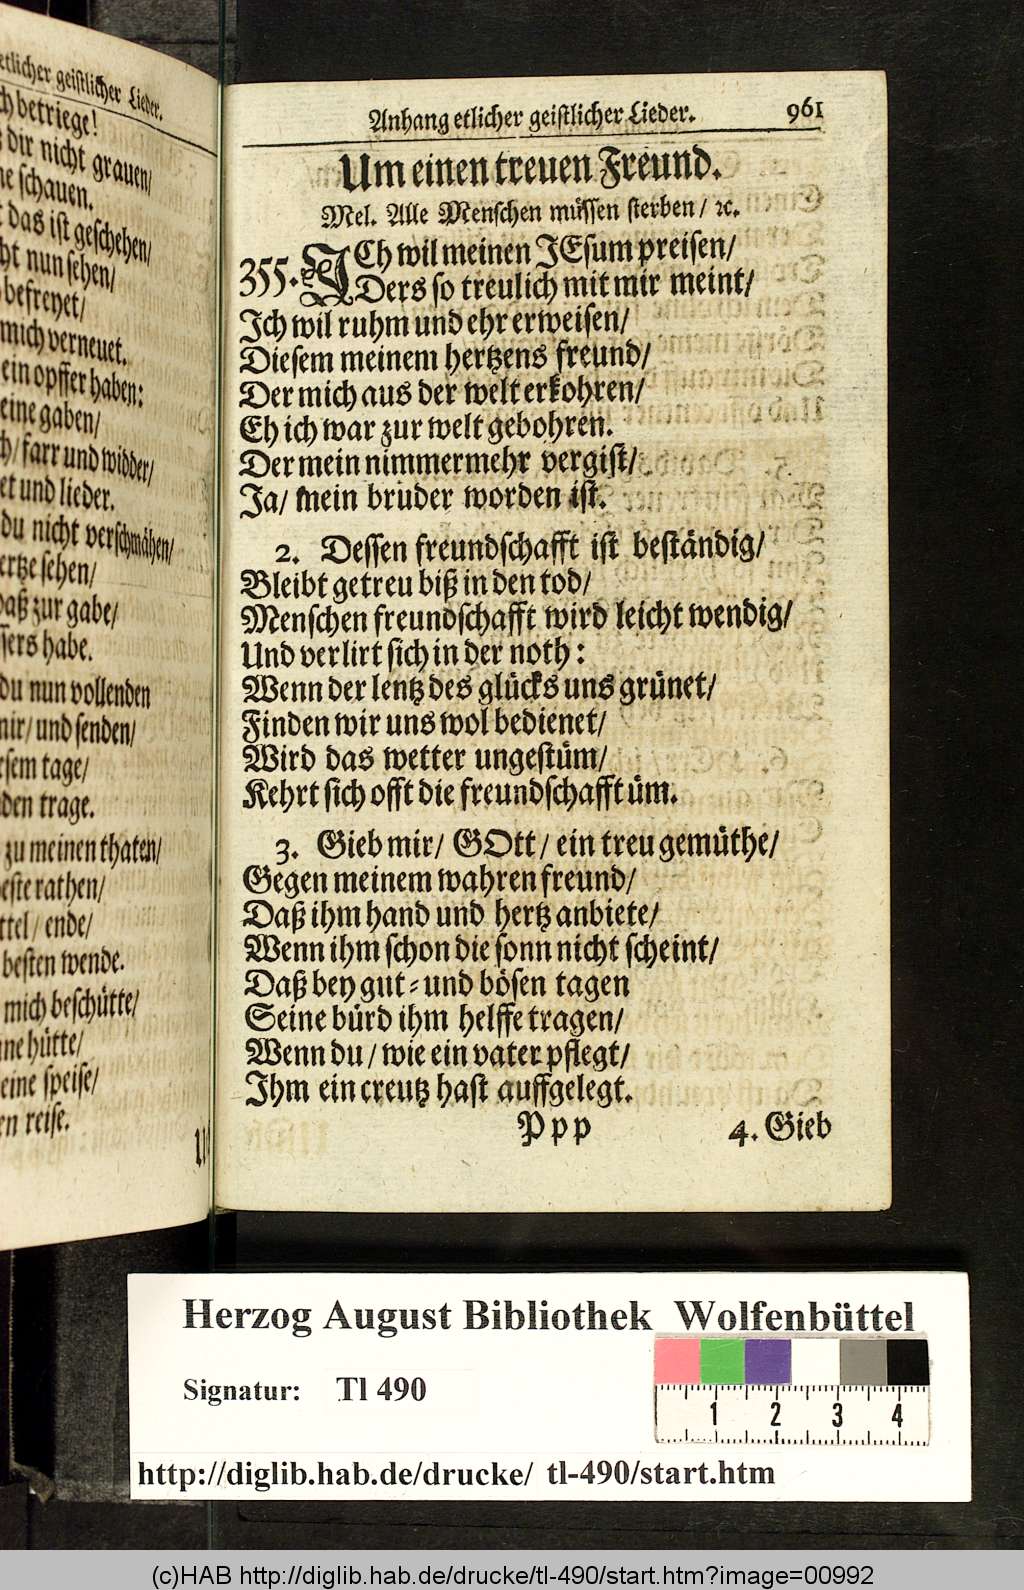 etlicher geistlicher Lieder.
ch betriege!
dir nicht grauen/
ne schauen.
das ist geschehen/
cht nun sehen/
befreyet/
mich verneuet.
ein opffer haben:
eine gaben/
ch/ farr und widder/
et und lieder.
du nicht verschmähen/
ertze sehen/
daß zur gabe/
ssers habe.
du nun vollenden
mir/ und senden/
esem tage/
den trage.
zu meinen thaten/
este rathen/
ttel/ ende/
besten wende.
mich beschütte/
ine hütte/
eine speise/
en reise.
Anhang etlicher geistlicher Lieder. 961
Um einen treuen Freund.
Mel. Alle Menschen müssen sterben/ ꝛc.
355. ICh wil meinen JEsum preisen/
Ders so treulich mit mir meint/
Ich wil ruhm und ehr erweisen/
Diesem meinem hertzens freund/
Der mich aus der welt erkohren/
Eh ich war zur welt gebohren.
Der mein nimmermehr vergist/
Ja/ mein bruder worden ist.
2. Dessen freundschafft ist beständig/
Bleibt getreu biß in den tod/
Menschen freundschafft wird leicht wendig/
Und verlirt sich in der noth:
Wenn der lentz des glücks uns grünet/
Finden wir uns wol bedienet/
Wird das wetter ungestüm/
Kehrt sich offt die freundschafft üm.
3. Gieb mir/ GOtt/ ein treu gemüthe/
Gegen meinem wahren freund/
Daß ihm hand und hertz anbiete/
Wenn ihm schon die sonn nicht scheint/
Daß bey gut- und bösen tagen
Seine bürd ihm helffe tragen/
Wenn du/ wie ein vater pflegt/
Ihm ein creutz hast auffgelegt.
Ppp 4. Gieb
Herzog August Bibliothek Wolfenbüttel
Signatur: Tl 490
1 2 3 4
http://diglib.hab.de/drucke/ tl-490/start.htm
(c)HAB http://diglib.hab.de/drucke/tl-490/start.htm?image=00992